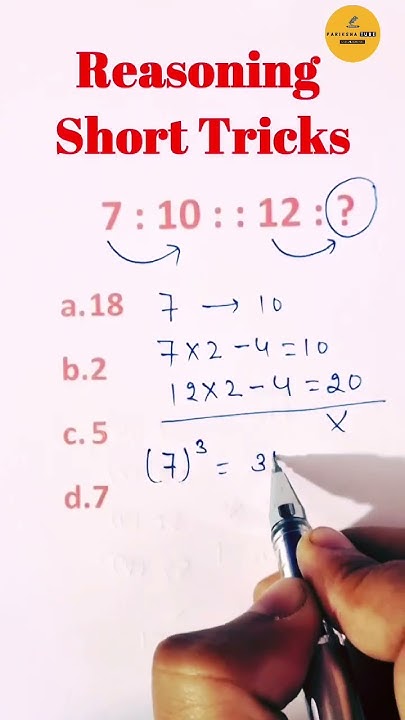 PARIKSHA TUBE
Reasoning
Short Tricks
7 : 10 : : 12 : ?
a.18
7 → 10
b.2
7×2-4=10
12×2-4=20
X
c.5
(7)³ = 3
d.7